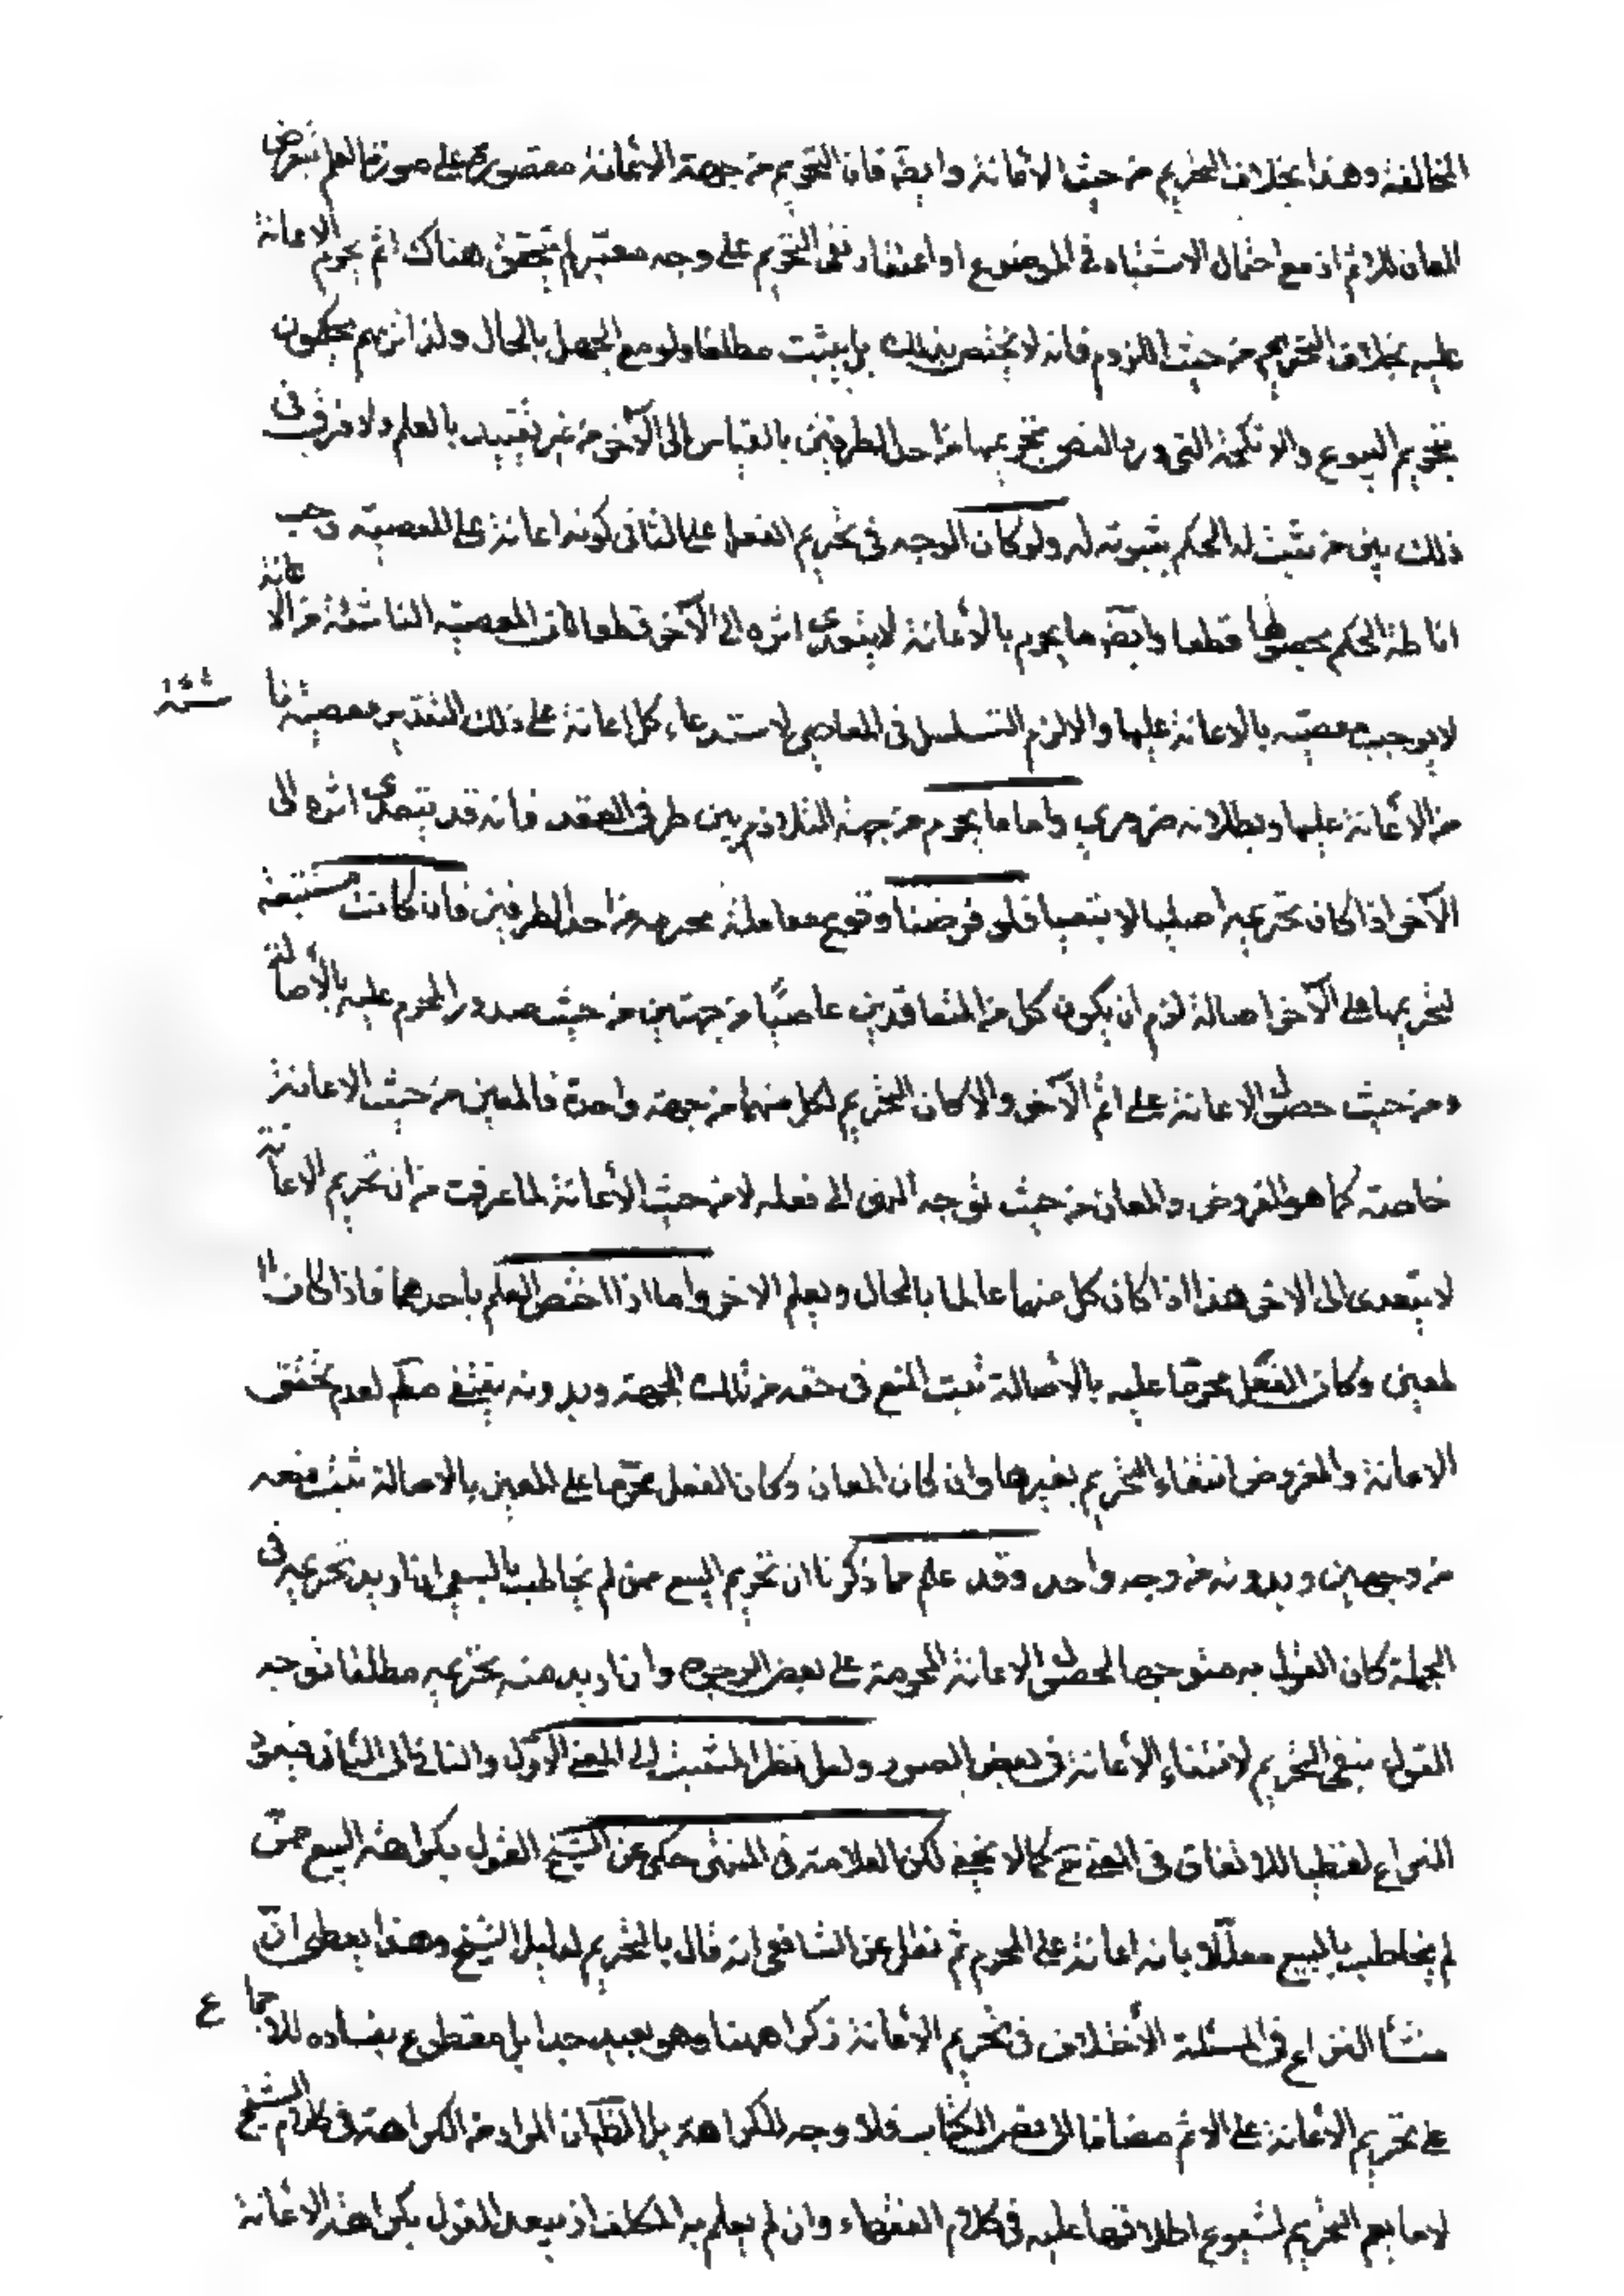 المخالفة وهذا بخلاف التحريم من حيث الأعانة وايضا فان التحريم من جهة الاعانة مقصورة على صورة العلم بتعرض
المعان للاثم اذ مع احتمال الاشتباه في الموضوع او اعتقاد نفي التحريم على وجه معتبر لم يتحقق هناك اثم يحرم الاعانة
عليه بخلاف التحريم من حيث اللزوم فانه لا يختص بذلك بل يثبت مطلقا ولو مع الجهل بالحال ولذا تريهم يحكمون
بتحريم البيوع والانكحة التي ورد النص بتحريمها من احد الطرفين بالقياس الى الآخر من غير تقييد بالعلم ولا فرق في
ذلك بين من يثبت له الحكم بثبوته له ولو كان الوجه في تحريم الفعل على الثاني كونه اعانة على المعصية وجب
اناطة الحكم بحصولها قطعا وايضا ما يحرم بالأعانة لا يتعدى اثره الى الآخر قطعا فان المعصية الناشئة من الاعانة
لا يوجب معصية بالاعانة عليها والا لزم التسلسل في المعاصي لاستدعاء كل اعانة على ذلك التقدير معصية ناشئة
من الأعانة عليها وبطلانه ضروري واما ما يحرم من جهة التلازم بين طرفي العقد فانه قد يتعدى اثره الى
الآخر اذا كان تحريمه اصليا لا بتعيا فلو فرضنا وقوع معاملة محرمة من احد الطرفين فان كانت مستتبعة
لتحريمها على الآخر اصالة لزم ان يكون كل من المتعاقدين عاصيًا من جهتين من حيث صدور المحرم عليه بالأصالة
ومن حيث حصول الاعانة على اثم الآخر والا كان التحريم لكل منهما من جهة واحدة فالمعين من حيث الاعانة
خاصة كما هو المفروض والمعان من حيث توجه النهي الى فعله لا من حيث الأعانة لما عرفت من ان تحريم الاعانة
لا يتعدى الى الاخر هذا اذا كان كل منهما عالما بالحال وبعلم الاخر واما اذا اختص العلم باحدهما فاذا كان
لمعين وكان الفعل محرّما عليه بالأصالة ثبت المنع في حقه من تلك الجهة وبدونه ينتفي لعدم تحقق
الاعانة والمفروض انتفاء التحريم بغيرها وان كان المعان وكان الفعل محرّما على المعين بالاصالة ثبت منعه
من وجهين وبدونه من وجه واحد وقد علم مما ذكرنا ان تحريم البيع ممن لم يخاطب بالسعي ان اريد تحريمه في
الجملة كان القول به متوجها لحصول الاعانة المحرمة على بعض الوجوه وان اريد منه تحريمه مطلقا توجه
القول بنفي التحريم لانتفاء الأعانة في بعض الصور ولعل نظر المثبت الى المعنى الاوّل والنافي الى الثاني فيعود
النزاع لفظيا للاتفاق في المعنى ح كما لا يخفى لكن العلامة في المنتهى حكى عن الشيخ القول بكراهة البيع ممّن
لم يخاطب بالبيع معلّلا بانه اعانة على المحرم ثم نقل عن الشافعي انه قال بالتحريم لدليل الشيخ وهذا يعطي انّ
منشأ النزاع في المسئلة الأختلاف في تحريم الأعانة وهو بعيد جدا بل مقطوع بفساده للاجماع
على تحريم الأعانة على الاثم مضافا الى نص الكتاب فلا وجه للكراهة بل الظ ان المراد من الكراهة في كلام الشيخ
لا ما يعم التحريم لشيوع اطلاقها عليه في كلام الفقهاء وان لم يعلم به المكلف اذ يبعد القول بكراهة الاعانة